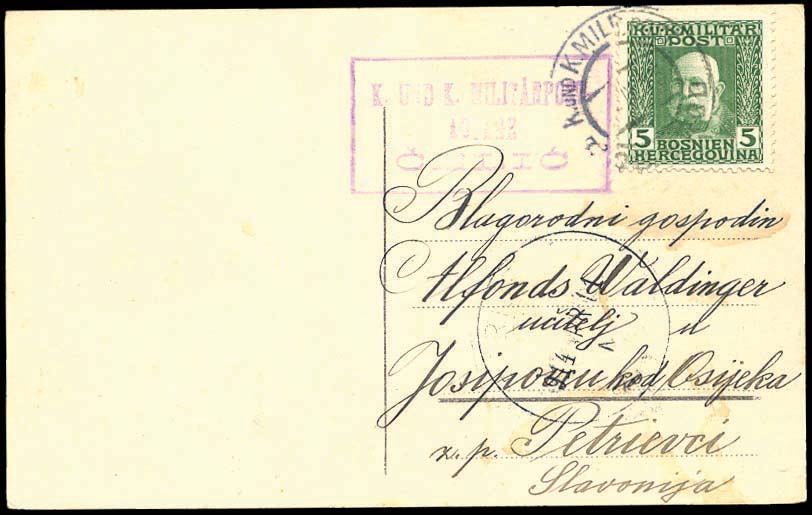 K.U.K.MILITÄR
POST
5 5
BOSNIEN
HERCEGOVINA
K. UND K. MILIT
K. UND K. MILITÄRPOST
Blagorodni gospodin
Alfonds Waldinger
učitelj u
Josipovcu kod Osijeka
z. p. Petrievci
Slavonija